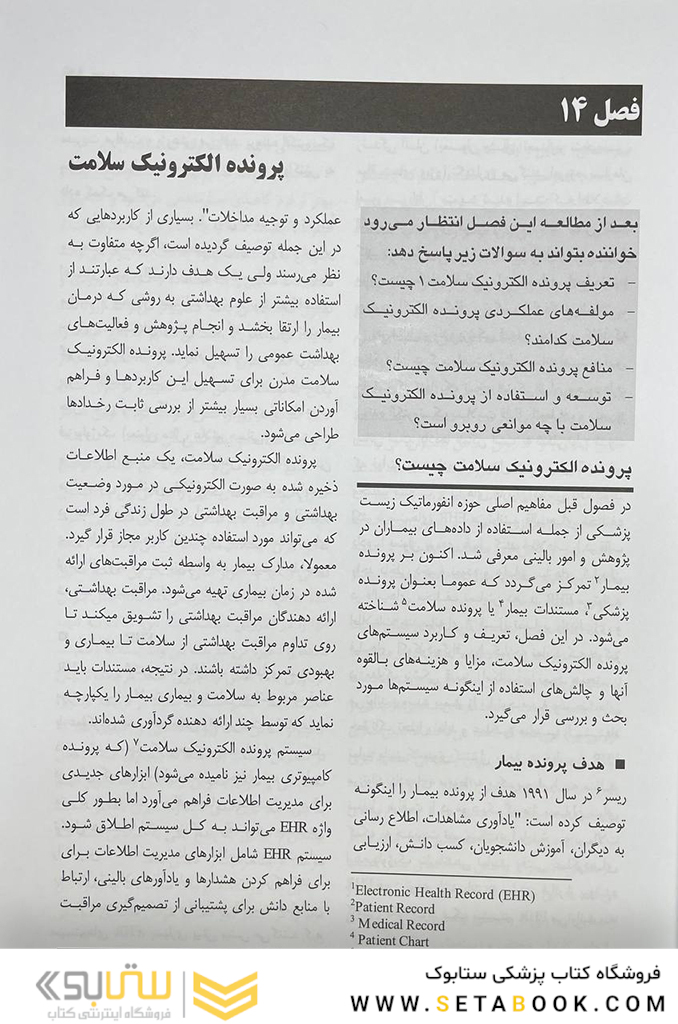 فصل ۱۴
پرونده الکترونیک سلامت
بعد از مطالعه این فصل انتظار می‌رود
خواننده بتواند به سوالات زیر پاسخ دهد:
- تعریف پرونده الکترونیک سلامت ۱ چیست؟
- مولفه‌های عملکردی پرونده الکترونیک
سلامت کدامند؟
- منافع پرونده الکترونیک سلامت چیست؟
- توسعه و استفاده از پرونده الکترونیک
سلامت با چه موانعی روبرو است؟
پرونده الکترونیک سلامت چیست؟
در فصول قبل مفاهیم اصلی حوزه انفورماتیک زیست
پزشکی از جمله استفاده از داده‌های بیماران در
پژوهش و امور بالینی معرفی شد. اکنون بر پرونده
بیمار۲ تمرکز می‌گردد که عموما بعنوان پرونده
پزشکی۳، مستندات بیمار۴ یا پرونده سلامت۵ شناخته
می‌شود. در این فصل، تعریف و کاربرد سیستم‌های
پرونده الکترونیک سلامت، مزایا و هزینه‌های بالقوه
آنها و چالش‌های استفاده از اینگونه سیستم‌ها مورد
بحث و بررسی قرار می‌گیرد.
■ هدف پرونده بیمار
ریسر۶ در سال ۱۹۹۱ هدف از پرونده بیمار را اینگونه
توصیف کرده است: "یادآوری مشاهدات، اطلاع رسانی
به دیگران، آموزش دانشجویان، کسب دانش، ارزیابی
1Electronic Health Record (EHR)
2Patient Record
3 Medical Record
4 Patient Chart
عملکرد و توجیه مداخلات". بسیاری از کاربردهایی که
در این جمله توصیف گردیده است، اگرچه متفاوت به
نظر می‌رسند ولی یک هدف دارند که عبارتند از
استفاده بیشتر از علوم بهداشتی به روشی که درمان
بیمار را ارتقا بخشد و انجام پژوهش و فعالیت‌های
بهداشت عمومی را تسهیل نماید. پرونده الکترونیک
سلامت مدرن برای تسهیل این کاربردها و فراهم
آوردن امکاناتی بسیار بیشتر از بررسی ثابت رخدادها
طراحی می‌شود.
پرونده الکترونیک سلامت، یک منبع اطلاعات
ذخیره شده به صورت الکترونیکی در مورد وضعیت
بهداشتی و مراقبت بهداشتی در طول زندگی فرد است
که می‌تواند مورد استفاده چندین کاربر مجاز قرار گیرد.
معمولا، مدارک بیمار به واسطه ثبت مراقبت‌های ارائه
شده در زمان بیماری تهیه می‌شود. مراقبت بهداشتی،
ارائه دهندگان مراقبت بهداشتی را تشویق میکند تا
روی تداوم مراقبت بهداشتی از سلامت تا بیماری و
بهبودی تمرکز داشته باشند. در نتیجه، مستندات باید
عناصر مربوط به سلامت و بیماری بیمار را یکپارچه
نماید که توسط چند ارائه دهنده گردآوری شده‌اند.
سیستم پرونده الکترونیک سلامت۷ (که پرونده
کامپیوتری بیمار نیز نامیده می‌شود) ابزارهای جدیدی
برای مدیریت اطلاعات فراهم می‌آورد اما بطور کلی
واژه EHR می‌تواند به کل سیستم اطلاق شود.
سیستم EHR شامل ابزارهای مدیریت اطلاعات برای
برای فراهم کردن هشدارها و یادآورهای بالینی، ارتباط
با منابع دانش برای پشتیبانی از تصمیم‌گیری مراقبت
فروشگاه کتاب پزشکی ستابوک
WWW.SETABOOK.COM
ستابوک
فروشگاه اینترنتی کتاب